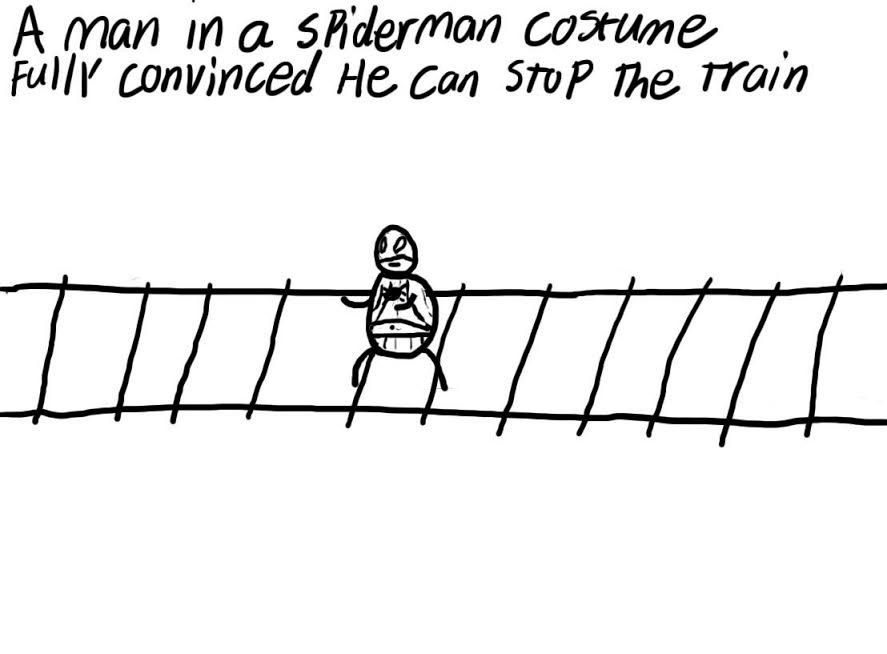 A man in a spiderman costume
Fully convinced He can stop The Train